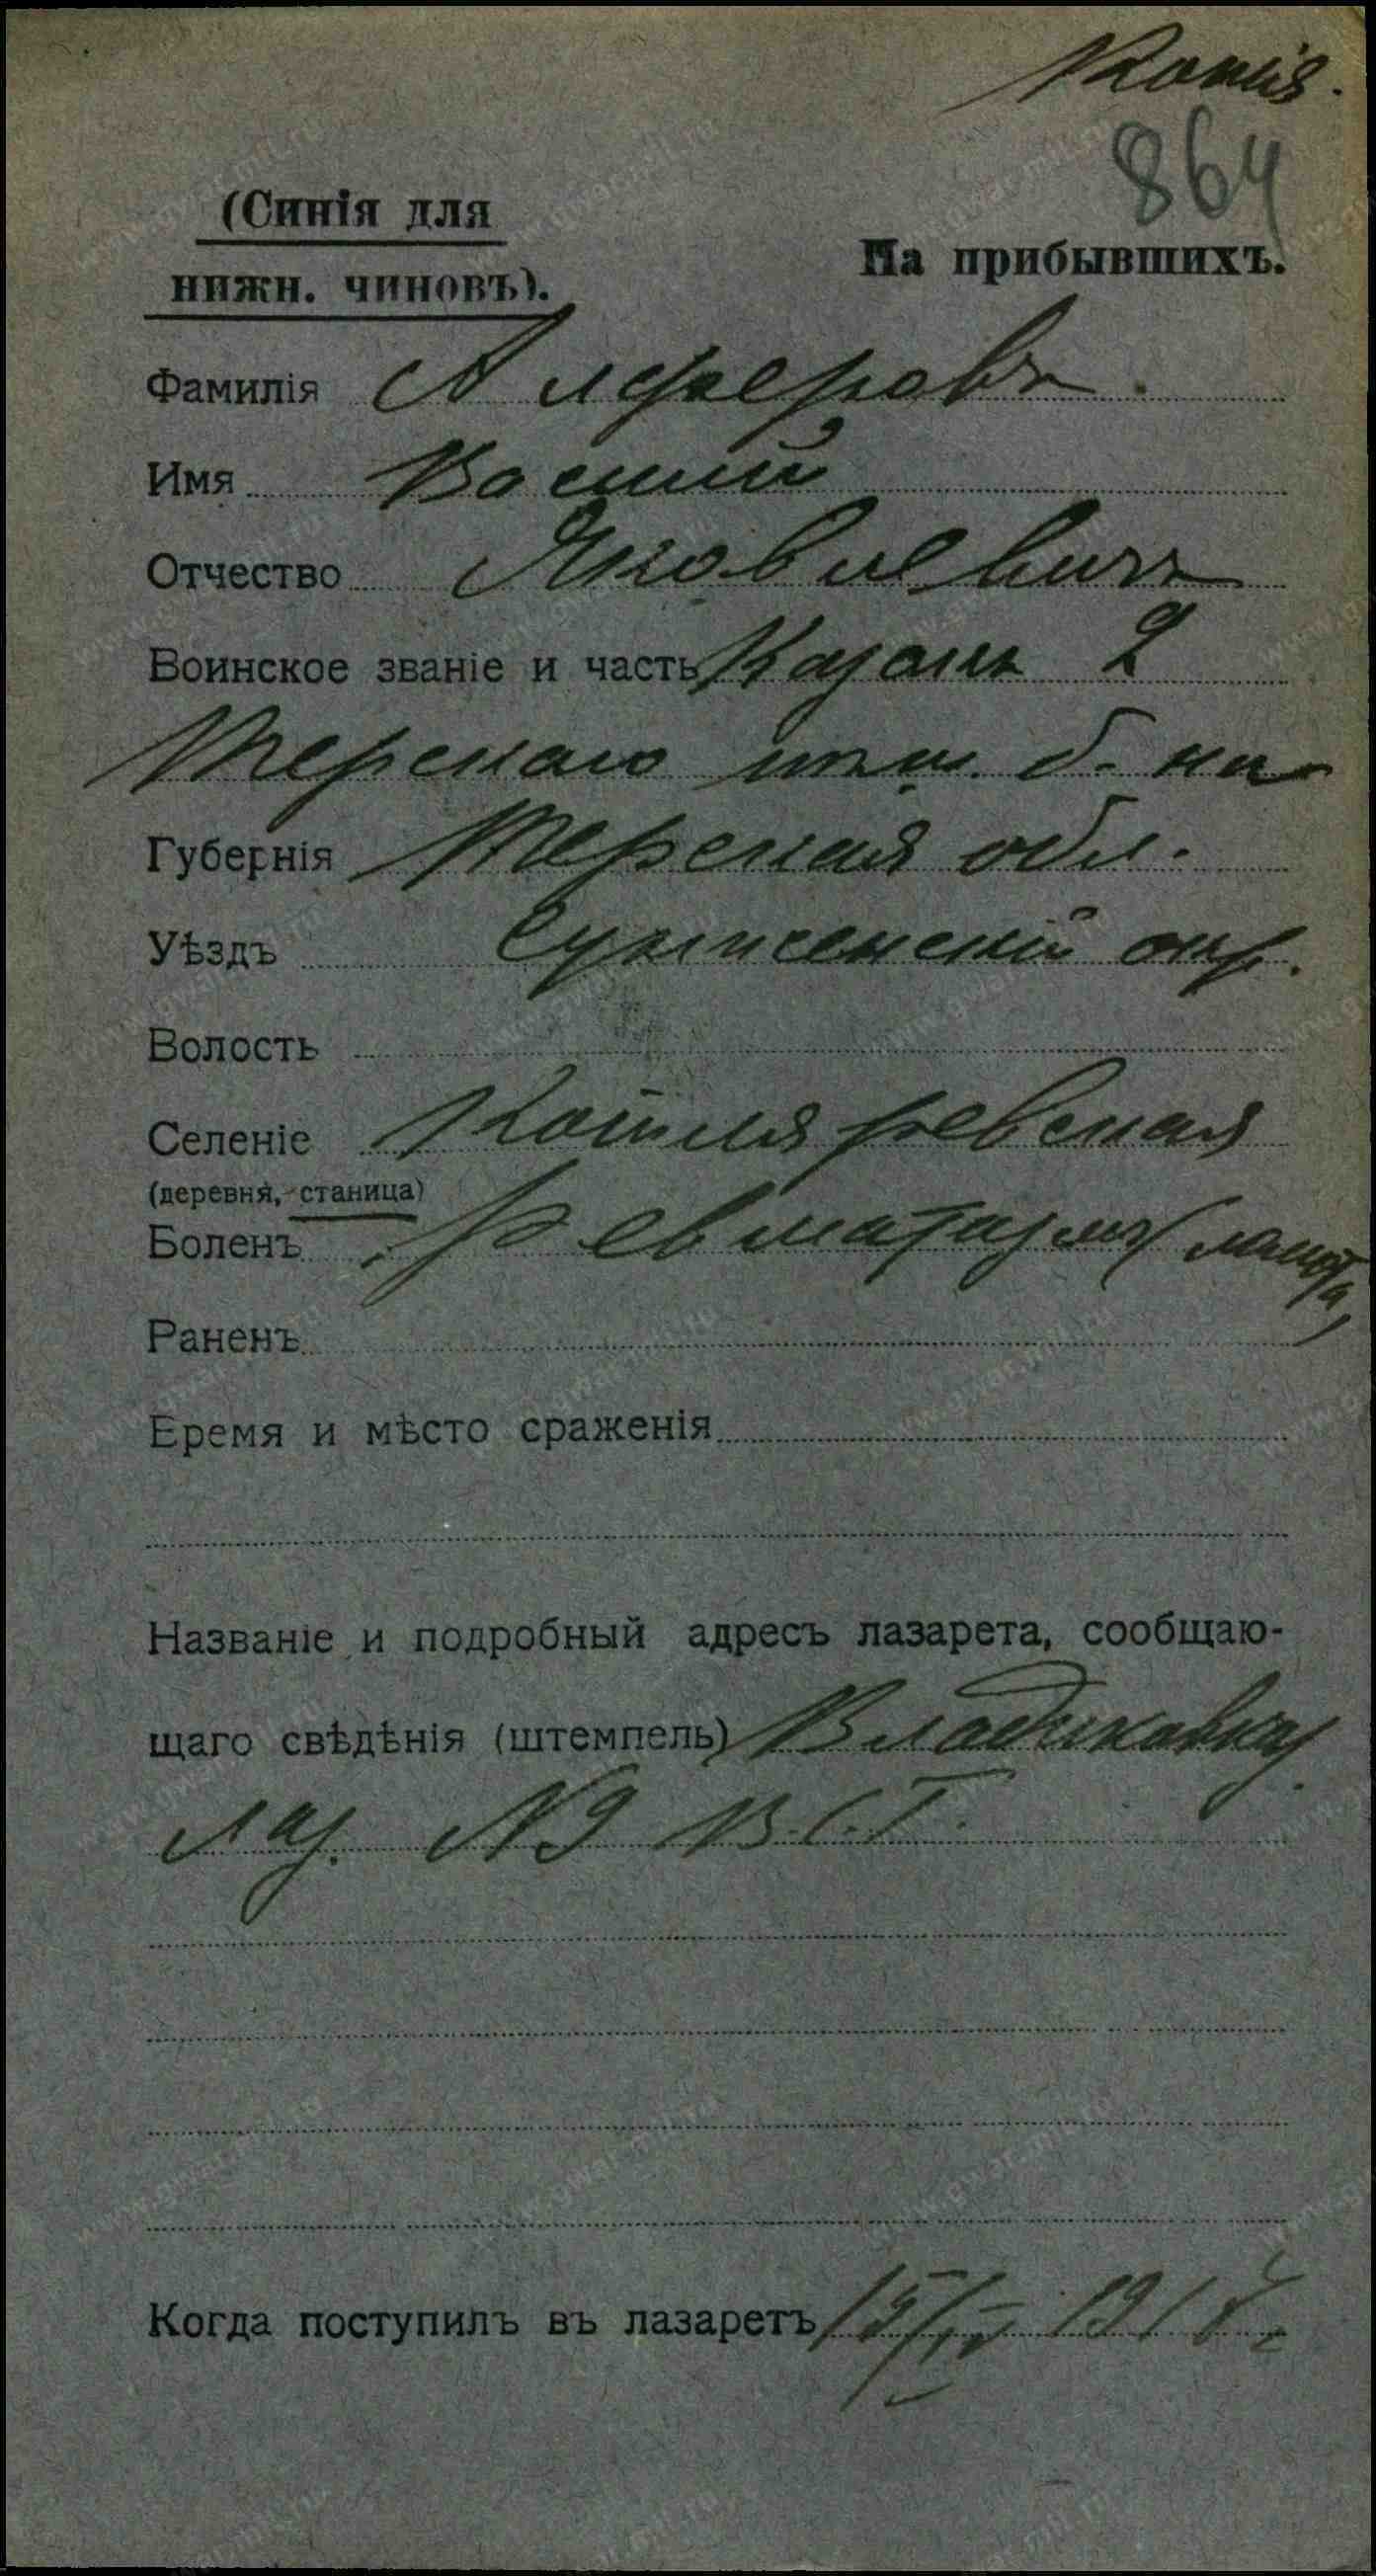 Копія.
864
(Синія для
нижн. чиновъ).
На прибывшихъ.
Фамилія Алферовъ.
Имя Василий
Отчество Яковлевичъ
Воинское званіе и часть Казакъ 2
Терскаго пласт. б-на
Губернія Терская обл.
Уѣздъ Сунженскій окр.
Волость
Селеніе Котляревская
(деревня, станица)
Боленъ Ревматизмъ
Раненъ
Время и мѣсто сраженія
Названіе и подробный адресъ лазарета, сообщаю-
щаго свѣдѣнія (штемпель) Владикавказ
лаз. №9 В.С.Г.
Когда поступилъ въ лазаретъ 15/IV 191
www.gwar.mil.ru